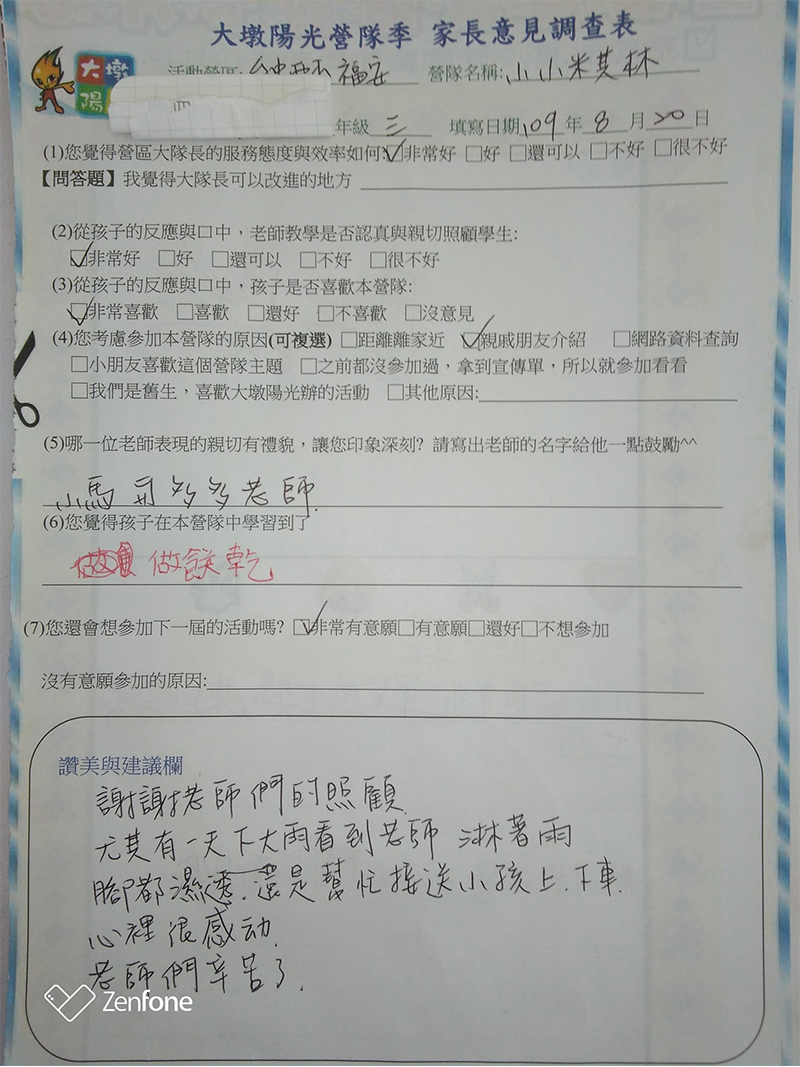 大墩陽光營隊季 家長意見調查表
大墩
陽
活動營區: 台中西屯福安 營隊名稱: 小小米其林
年級 三 填寫日期 109 年 8 月 20 日
(1)您覺得營區大隊長的服務態度與效率如何 ☑非常好 □好 □還可以 □不好 □很不好
【問答題】我覺得大隊長可以改進的地方
(2)從孩子的反應與口中，老師教學是否認真與親切照顧學生:
☑非常好 □好 □還可以 □不好 □很不好
(3)從孩子的反應與口中，孩子是否喜歡本營隊:
☑非常喜歡 □喜歡 □還好 □不喜歡 □沒意見
(4)您考慮參加本營隊的原因(可複選) □距離離家近 ☑親戚朋友介紹 □網路資料查詢
□小朋友喜歡這個營隊主題 □之前都沒參加過，拿到宣傳單，所以就參加看看
□我們是舊生，喜歡大墩陽光辦的活動 □其他原因:
(5)哪一位老師表現的親切有禮貌，讓您印象深刻? 請寫出老師的名字給他一點鼓勵^^
小馬 多多老師.
(6)您覺得孩子在本營隊中學習到了
做餅乾
(7)您還會想參加下一屆的活動嗎? ☑非常有意願□有意願□還好□不想參加
沒有意願參加的原因:
讚美與建議欄
謝謝老師們的照顧
尤其有一天下大雨看到老師 淋著雨
腳都濕透.還是幫忙接送小孩上.下車.
心裡很感动.
老師們辛苦了.
Zenfone